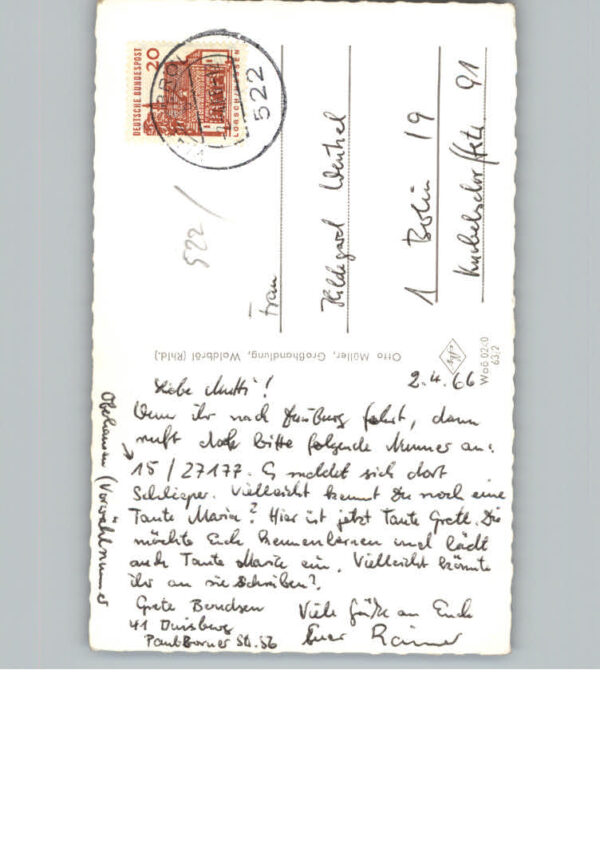 DEUTSCHE BUNDESPOST
20
LORSCH/HESSEN
522
522/
Frau
Hildegard Wentzel
1 Berlin 19
Knobelsdorffstr. 91
Otto Müller, Großhandlung, Waldbröl (Rhld.)
Agfa
63/2
2.4.66
Liebe Mutti!
Wenn ihr nach Duisburg fahrt, dann
ruft doch bitte folgende Nummer an:
15/27177. Es meldet sich dort
Schlieper. Vielleicht kennt Du noch eine
Tante Maria? Hier ist jetzt Tante Gretl. Die
möchte Euch kennenlernen und lädt
auch Tante Maria ein. Vielleicht könnte
ihr an sie schreiben?
Grete Berndsen
41 Duisburg
Viele Grüße an Euch
Euer Rainer
Oberhausen (Vorwählnummer